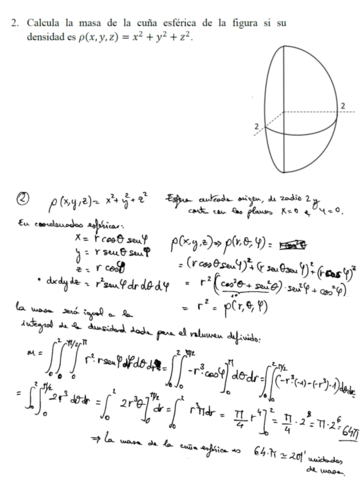 2. Calcula la masa de la cuña esférica de la figura si su
densidad es ρ(x, y, z) = x² + y² + z².
2
2
2
② ρ(x,y,z) = x²+y²+z² Esfera centrada origen, de radio 2 y
corte con los planos x=0 e y=0.
En coordenadas esféricas:
x = r cosθ senφ ρ(x,y,z) ⇒ ρ(r,θ,φ) =
y = r senθ senφ = (r cosθ senφ)² + (r senθ senφ)² + (r cosφ)²
z = r cosφ = r² (cos²θ + sen²θ) · sen²φ + cos²φ)
• dxdydz = r² senφ dr dθ dφ = r² = ρ(r,θ,φ)
la masa será igual a la
integral de la densidad dada para el volumen definido:
M = ∫₀² ∫₀^π/2 ∫₀^π r² · r senφ dφ dθ dr = ∫₀² ∫₀^π/2 -r³ cosφ]₀^π dθ dr = ∫₀² ∫₀^π/2 (-r³(-1) - (-r³)·1) dθ dr
= ∫₀² ∫₀^π/2 2r³ dθ dr = ∫₀² 2r³θ]₀^π/2 dr = ∫₀² r³π dr = π/4 r⁴]₀² = π/4 · 2⁸ = π·2⁶ = 64π
⇒ la masa de la cuña esférica es 64·π ≃ 201 unidades
de masa.